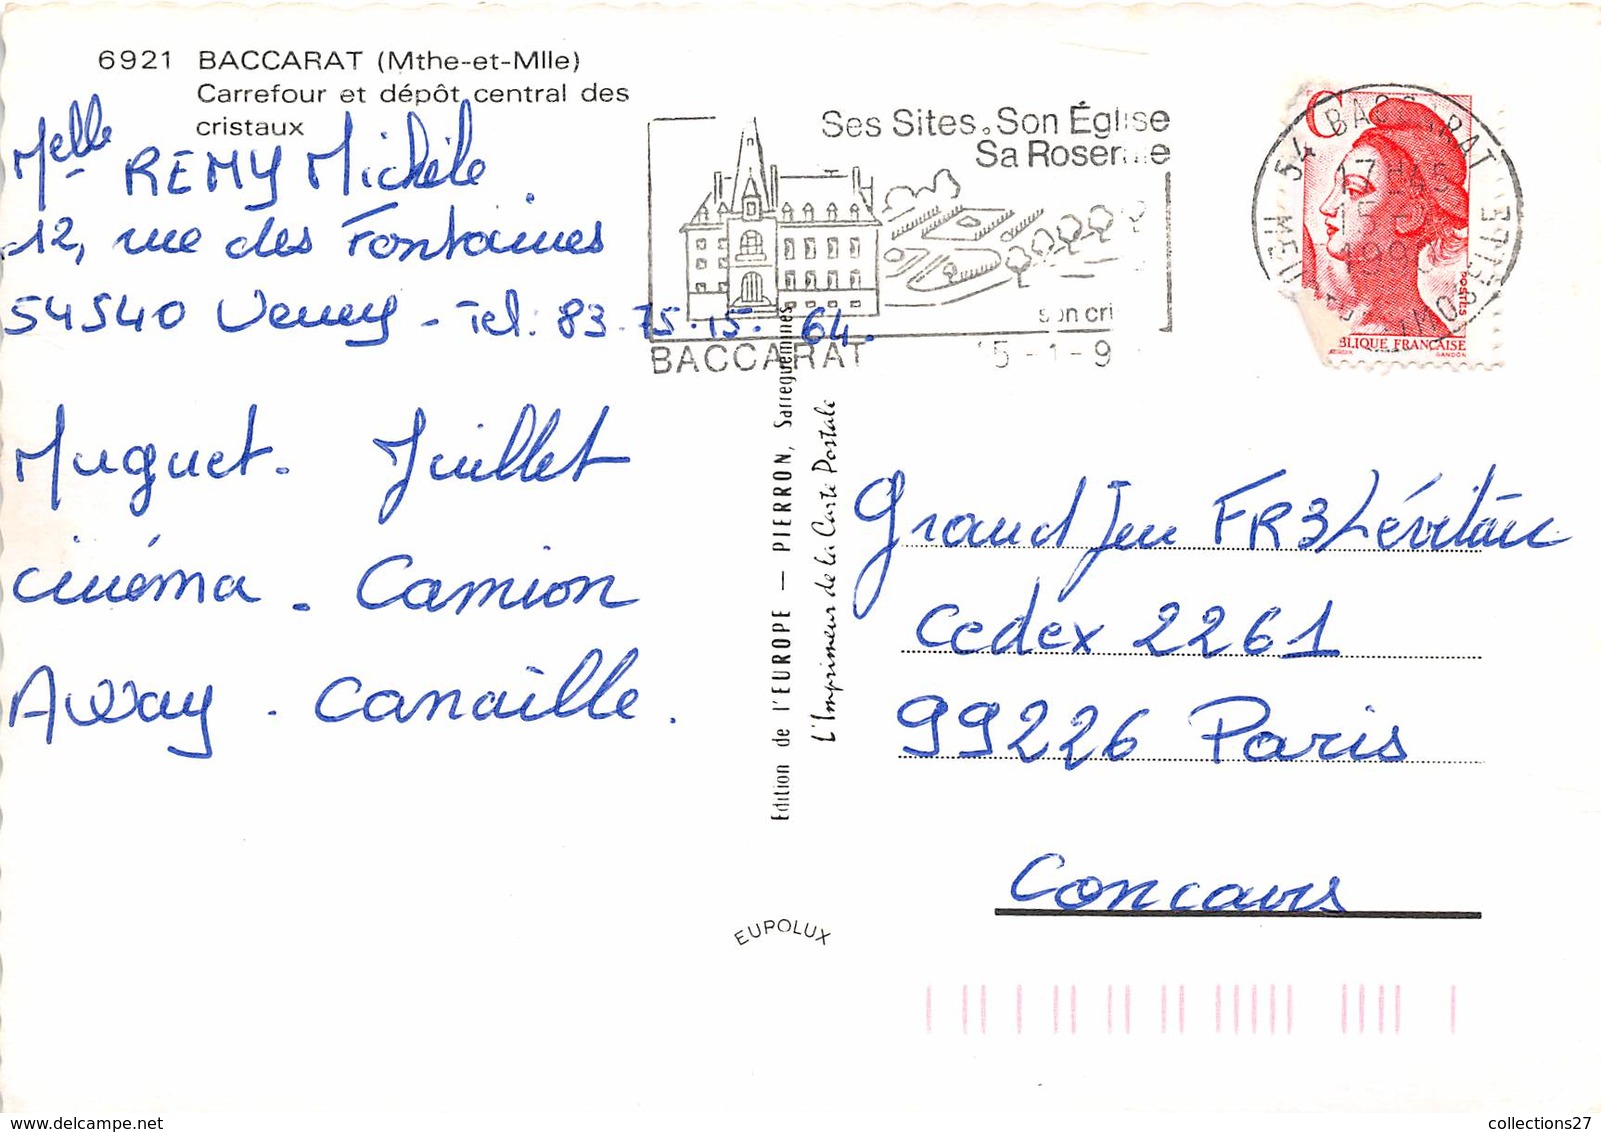 6921 BACCARAT (Mthe-et-Mlle)
Carrefour et dépôt central des
cristaux
Melle REMY Michèle.
12, rue des Fontaines
54540 Veney - Tel: 83.75.15.64.
Muguet. Juillet
cinéma. Camion
Away. Canaille.
Ses Sites. Son Église
Sa Roseraie
son cri
BACCARAT
15-1-9
54 BACCARAT
17H45
15
199
MEURTHE ET MOSELLE
POSTES
BLIQUE FRANÇAISE
GANDON
Edition de l'EUROPE — PIERRON, Sarreguemines
L'Imprimeur de la Carte Postale
Grand Jeu FR3 Lévitan
Cedex 2261
99226 Paris
Concours
EUROLUX
collections27